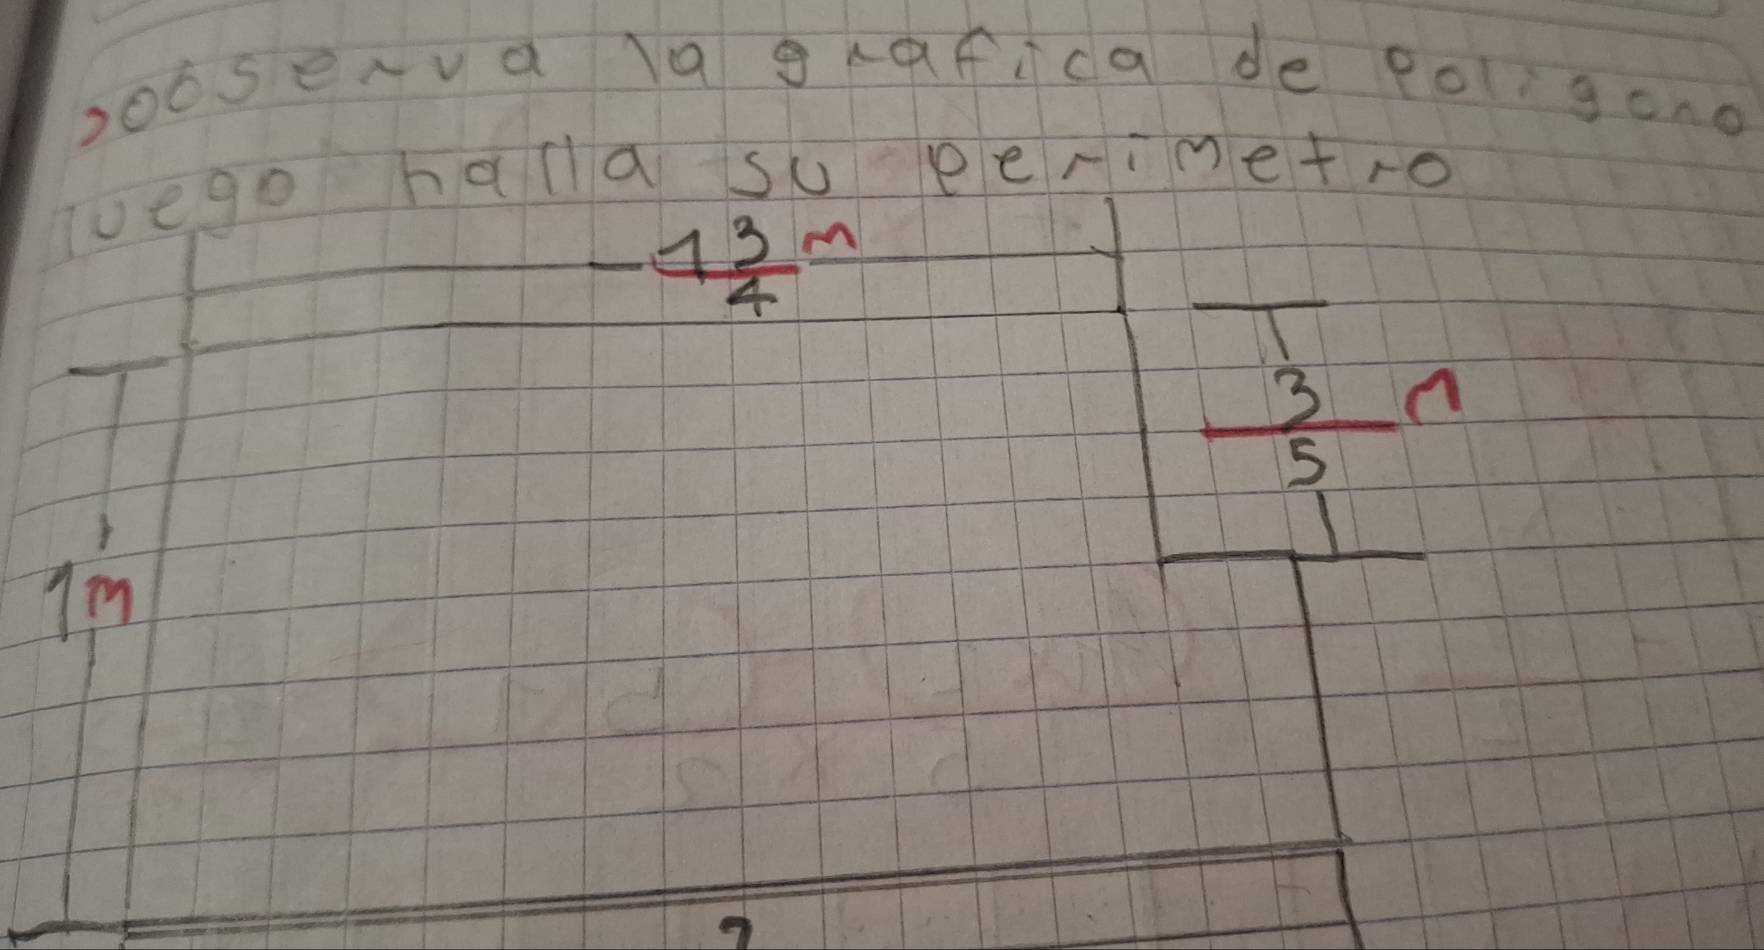 observa la grafica de poligono
luego halla su perimetro
1 3/4 m
3/5 m
1m